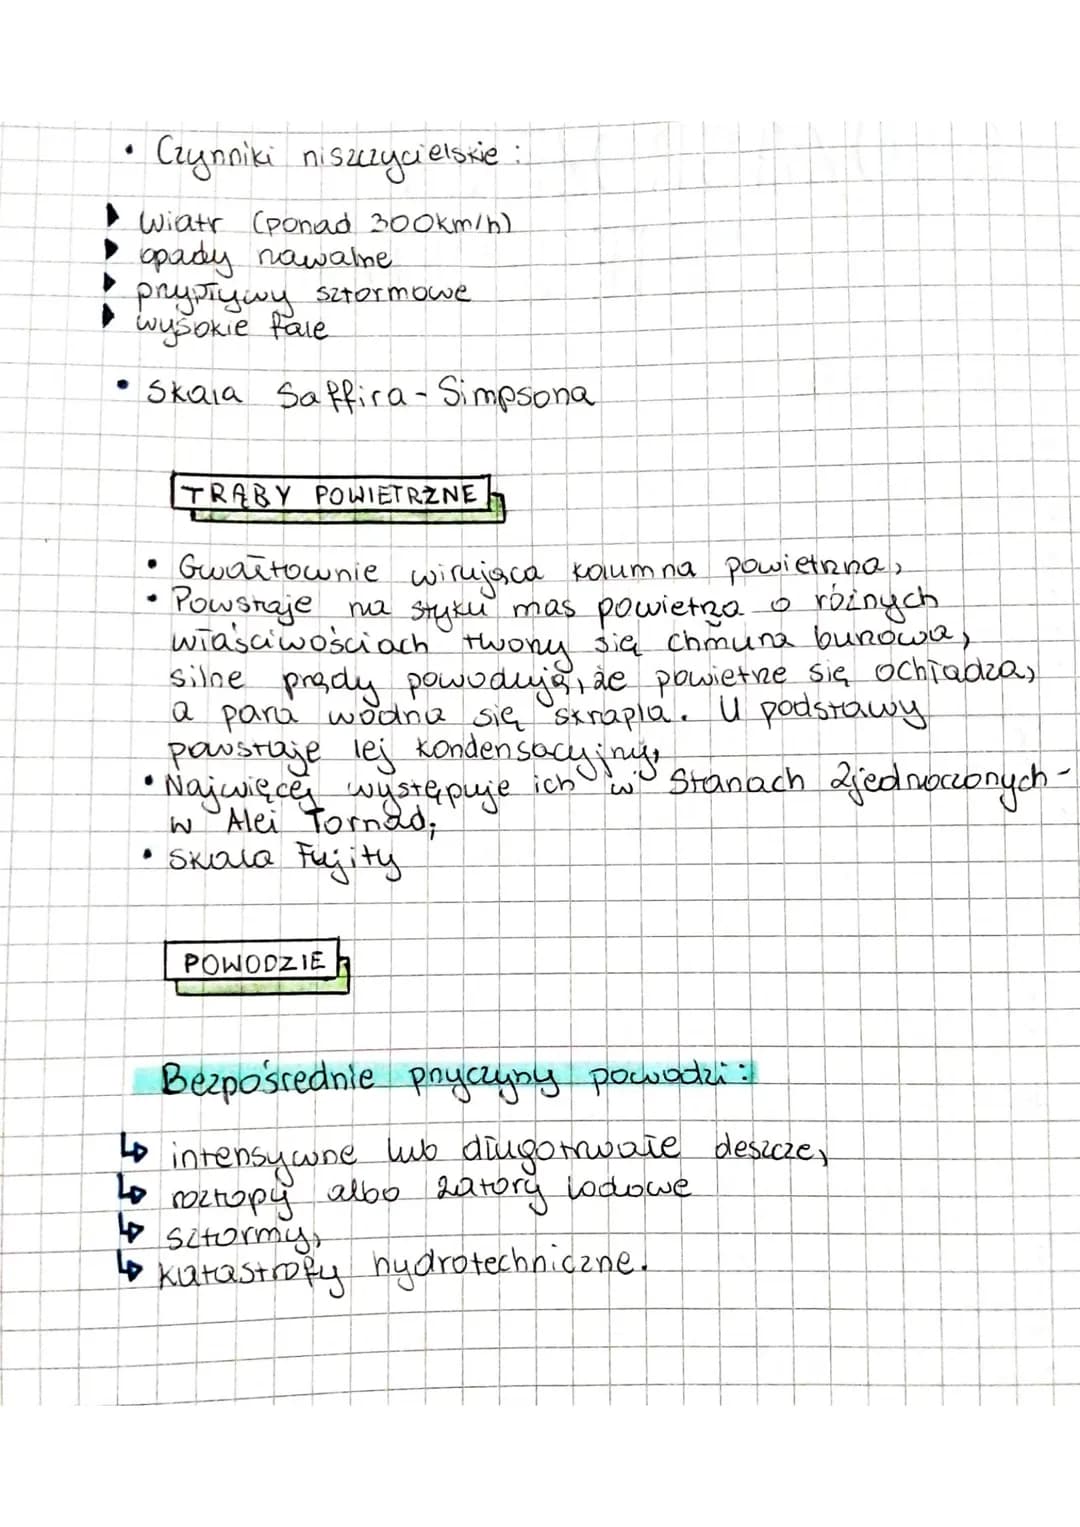 • Czynniki niszczycielskie :
▶ wiatr (ponad 300km/h)
▶ opady nawalne
▶ przypływy sztormowe
▶ wysokie fale
• Skala Saffira - Simpsona
TRĄBY POWIETRZNE
• Gwałtownie wirująca kolumna powietrzna,
• Powstaje na styku mas powietrza o różnych
właściwościach tworzy się chmura burzowa,
silne prądy powodują, że powietrze się ochładza,
a para wodna się skrapla. U podstawy
powstaje lej kondensacyjny,
• Najwięcej występuje ich w Stanach Zjednoczonych -
w Alei Tornad;
• Skala Fujity
POWODZIE
Bezpośrednie przyczyny powodzi :
↳ intensywne lub długotrwałe deszcze,
↳ roztopy albo zatory lodowe
↳ sztormy,
↳ katastrofy hydrotechniczne.